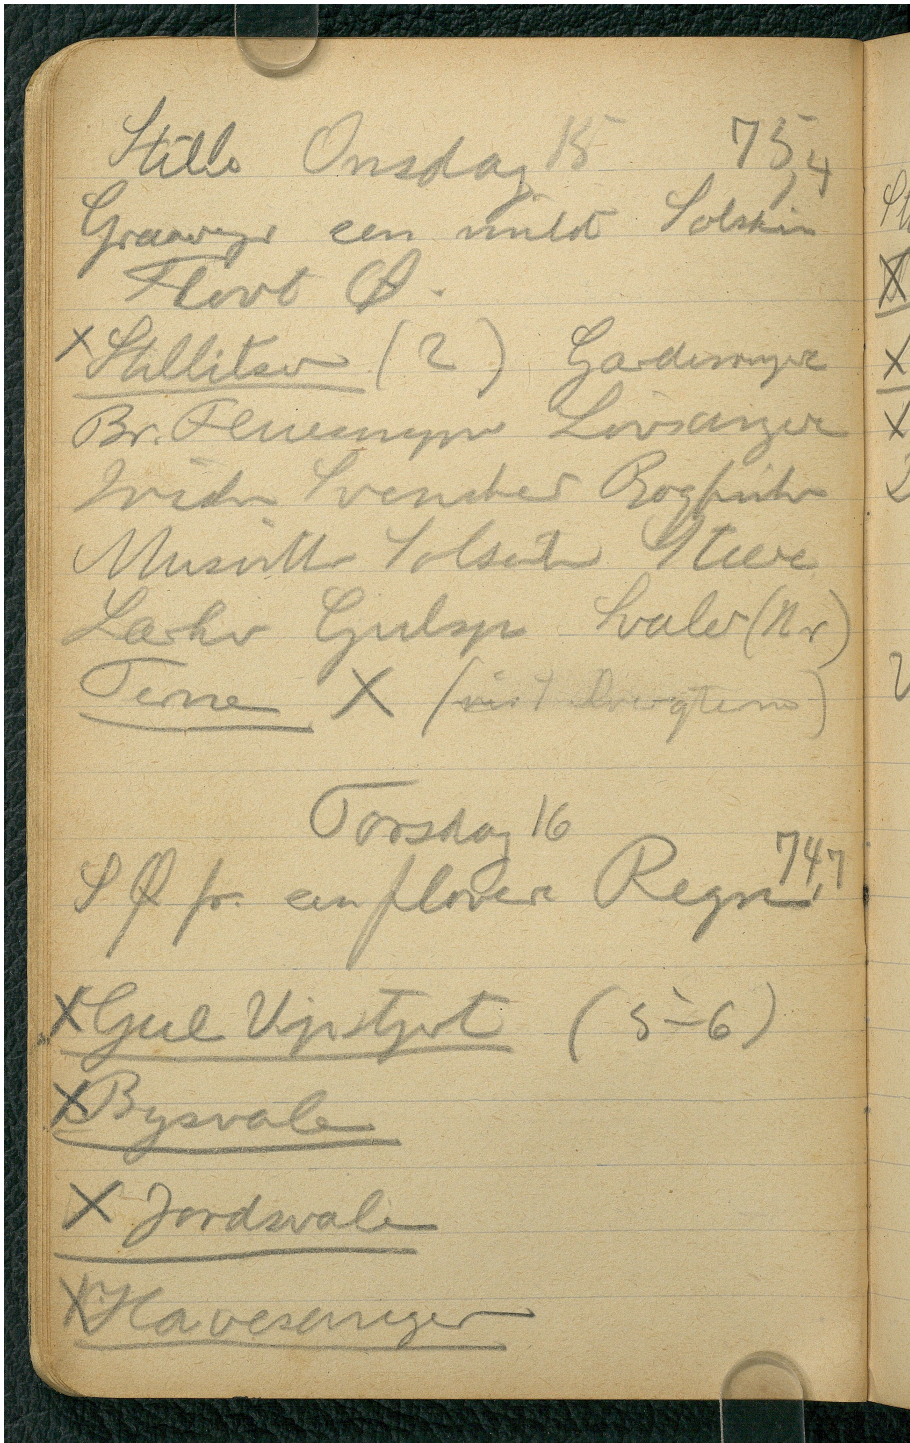 Stille Onsdag 15 75,4
Graaveyr en mildt Solskin
Flovt Ø.
x Stillitser (2) Gærdesmyre
Br. Fluesnapper Løvsanger
Irisker Svensker Bogfinke
Musvitte Solsort Stære
Lærke Gulsp Svaler (Nr)
Terne X (vist Dvergterne)
Torsdag 16
747,7
SØ fr. en flovere Regn
X Gul Vipstjert (5-6)
X Bysvale
X Jordsvale
X Havesanger